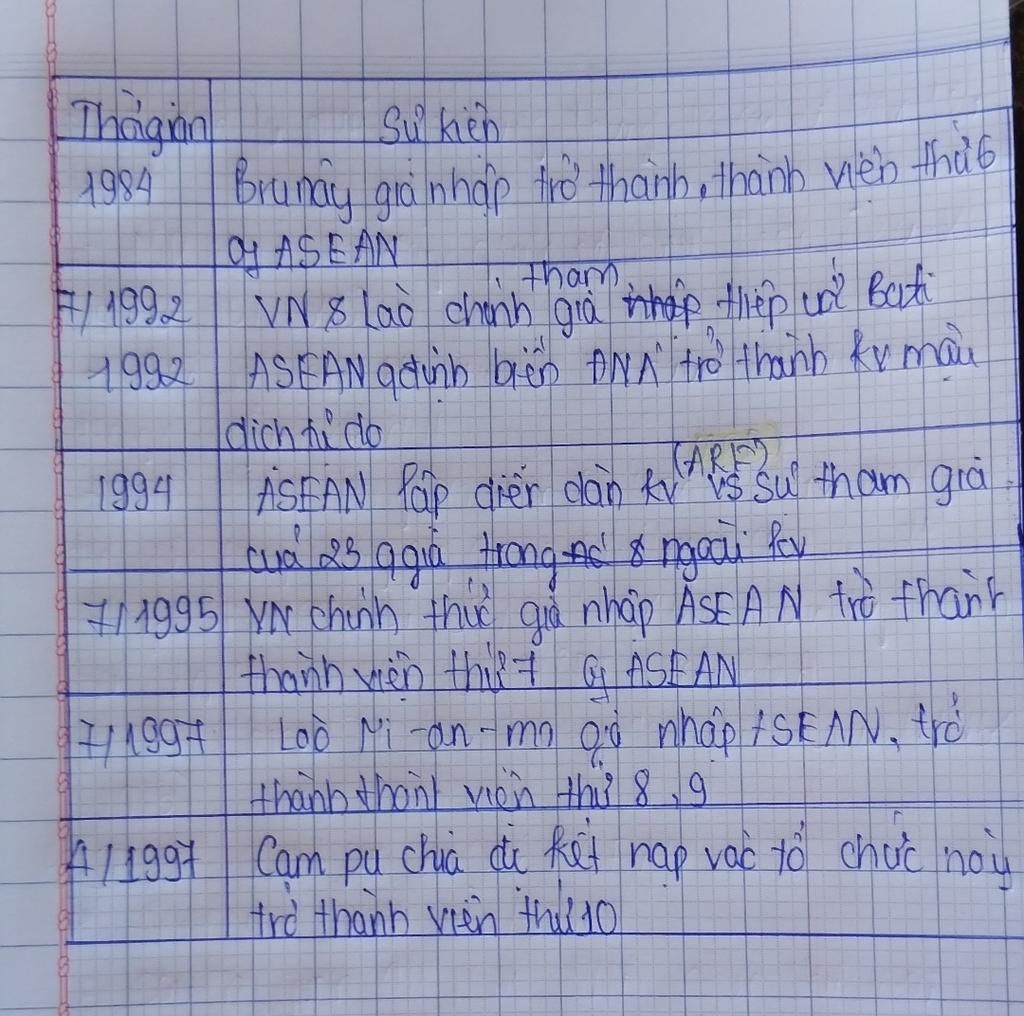 Thời gian Sự kiện
1984 Brunây gia nhập trở thành, thành viên thứ 6
of ASEAN
tham
7/1992 VN & Lào chính gia nhập hiệp ước Bali
1992 ASEAN qđịnh biến ĐNA trở thành kv mậu
dịch tự do
(ARF)
1994 ASEAN lập diễn đàn kv vs sự tham gia
của 23 qgia trong & ngoài kv
7/1995 VN chính thức gia nhập ASEAN trở thành
thành viên thứ 7 of ASEAN
7/1997 Lào Mi-an-ma gia nhập ASEAN, trở
thành thành viên thứ 8, 9
4/1997 Cam pu chia đc kết nạp vào tổ chức này
trở thành viên thứ 10